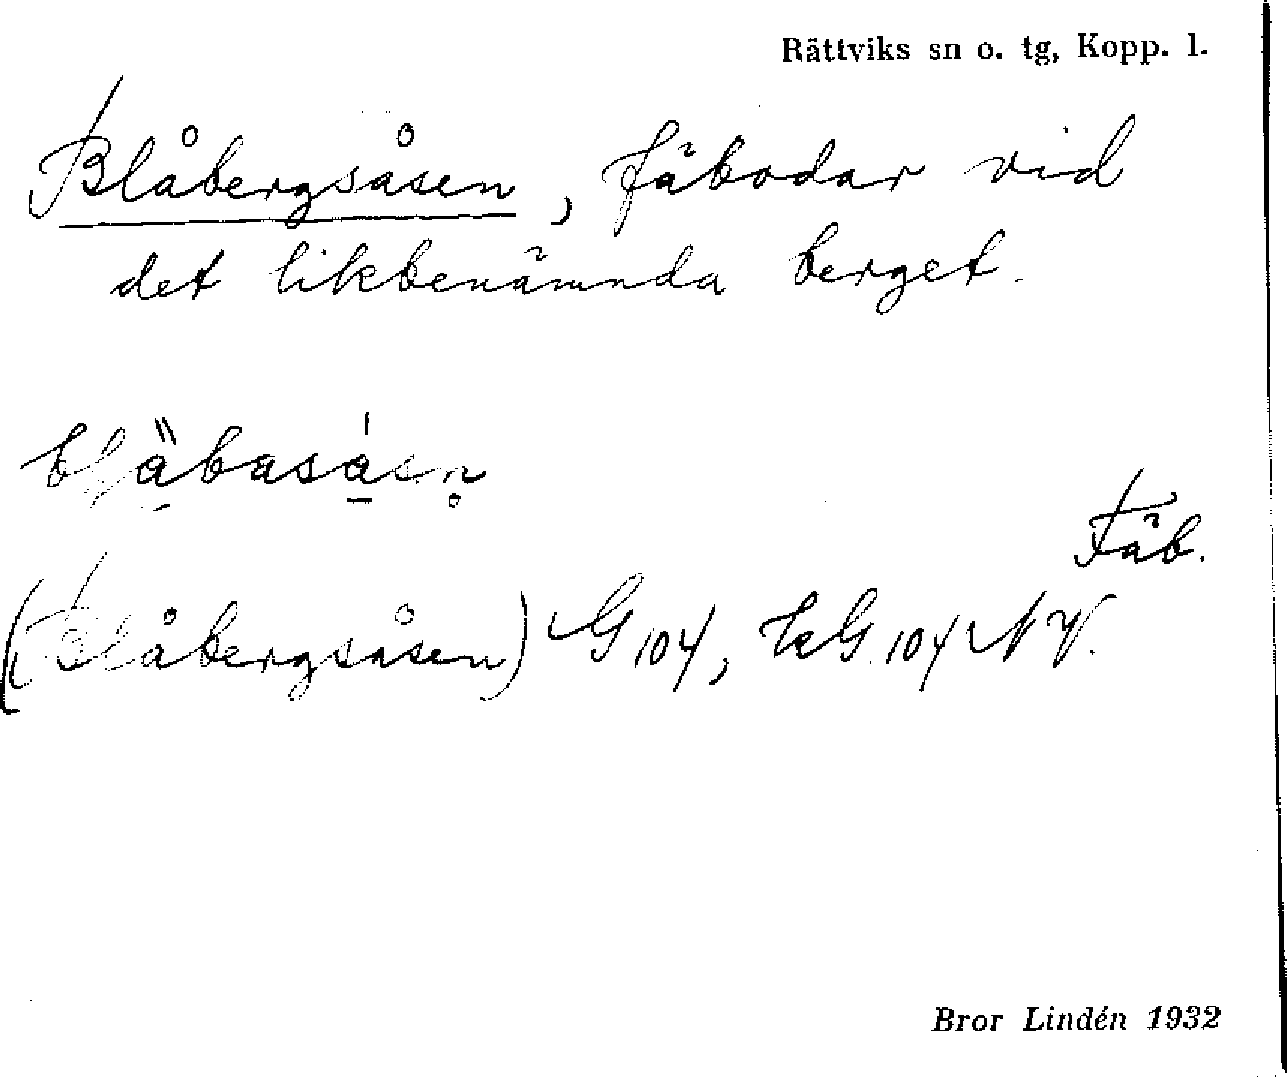 Rättviks sn o. tg, Kopp. l.
Blåbergsåsen, fäbodar vid
det likbenämnda berget.
Fäb.
(Blåbergsåsen) G 104, KG. 104 NV.
Bror Lindén 1932